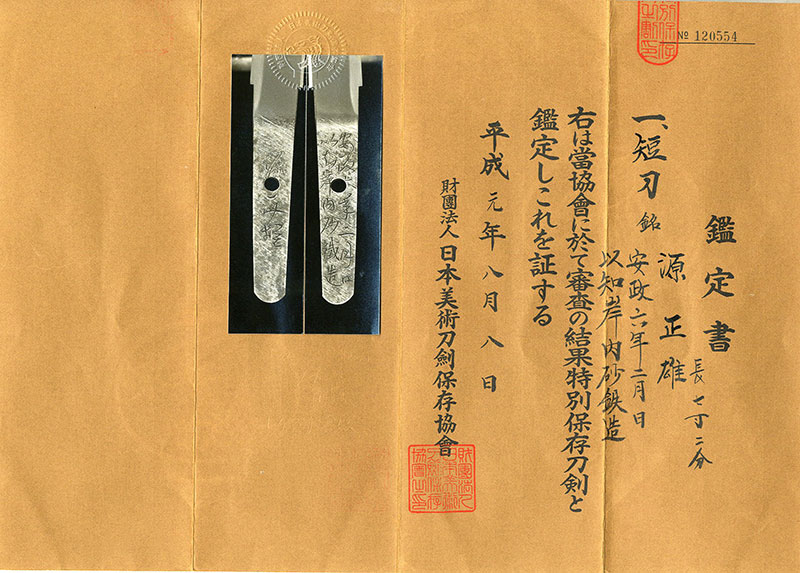 № 120554
鑑定書
一、短刀 銘 源正雄
安政六年二月日
以知岸内砂鉄造
長七寸二分
右は當協會に於て審査の結果特別保存刀剣と
鑑定しこれを証する
平成元年八月八日
財團法人日本美術刀劍保存協會